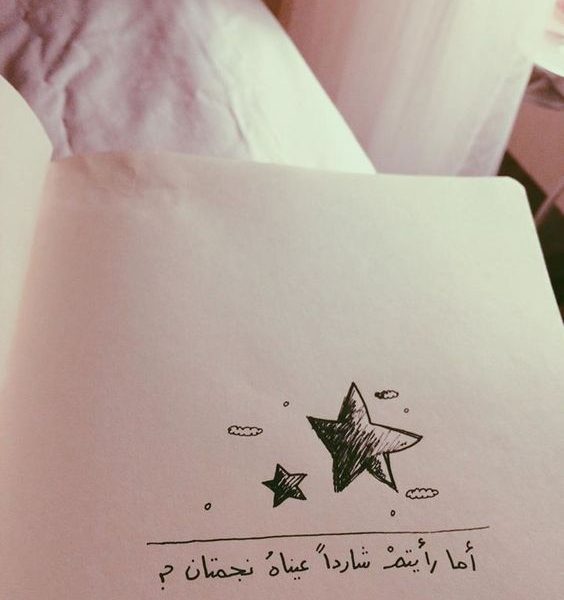 أما رأيتمْ شارداً عيناهُ نجمتان ؟